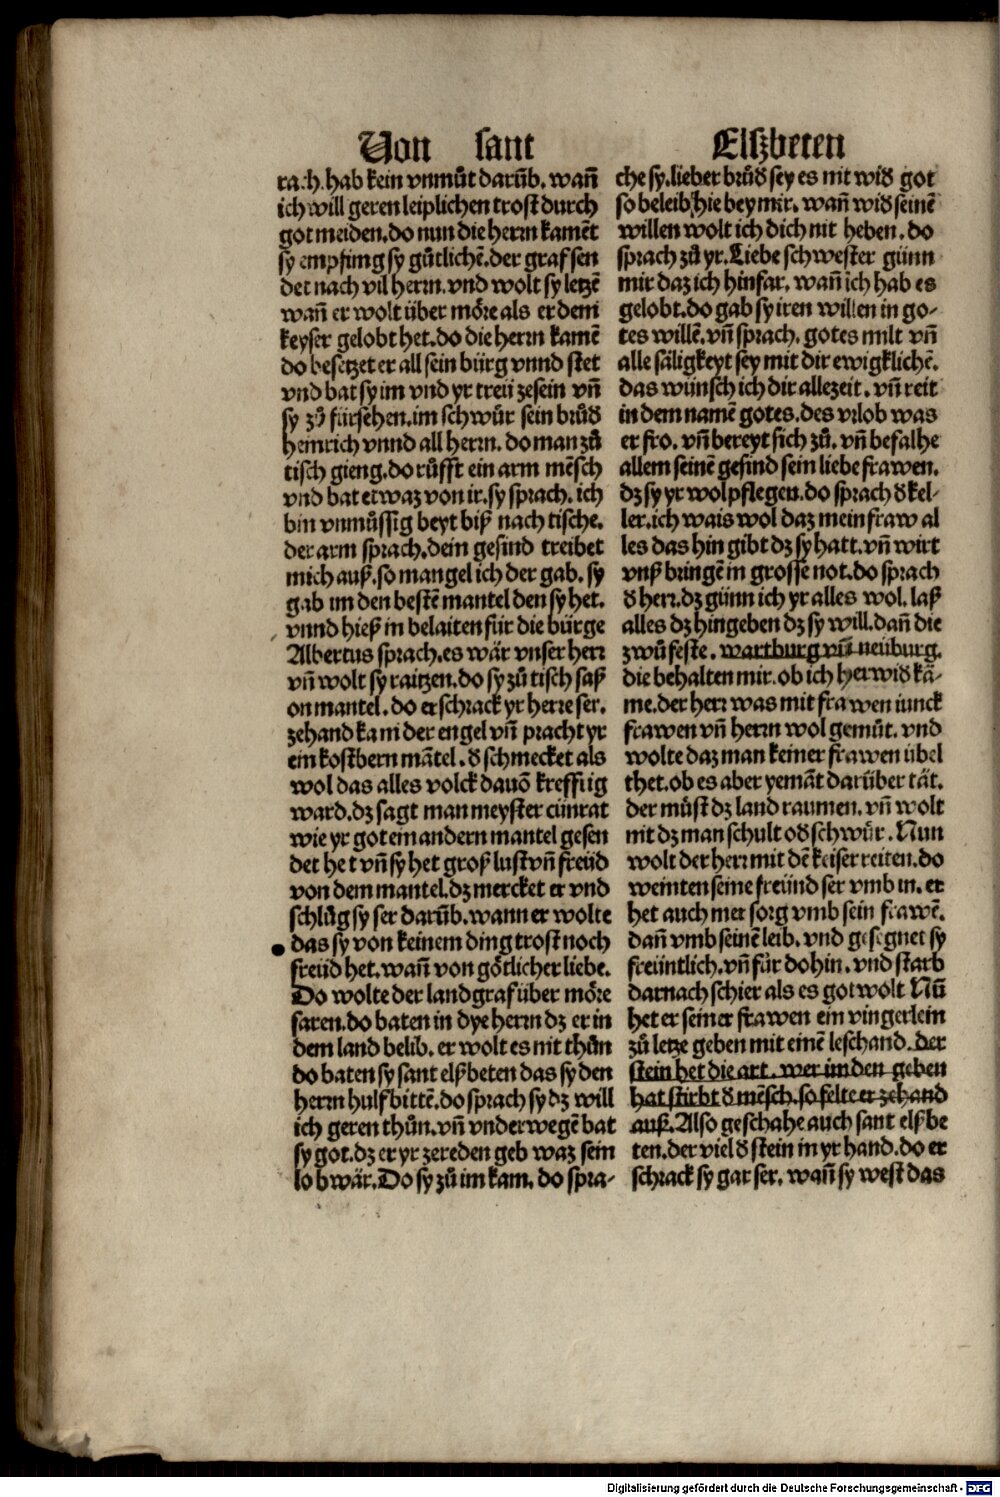 Von sant Elszbeten
ra.h. hab kein vnmůt darūb. wañ
ich will geren leiplichen trost durch
got meiden. do nun die herrn kamēt
sy empfing sy gůtlichē. der graf sen
det nach vil herrn. vnd wolt sy letzē
wañ er wolt über möre als er dem
keyser gelobt het. do die herrn kamē
do besetzet er all sein bürg vnnd stet
vnd bat sy im vnd yr treü zesein vñ
sy zů fürsehen. im schwůr sein brůd
heinrich vnnd all herrn. do man zů
tisch gieng. do růfft ein arm mēsch
vnd bat etwaz von ir. sy sprach. ich
bin vnmüssig beyt biß nach tische.
der arm sprach. dein gesind treibet
mich auß. so mangel ich der gab. sy
gab im den bestē mantel den sy het.
vnnd hieß in belaiten für die bürge
Albertus sprach. es wär vnser herr
vñ wolt sy raitzen. do sy zů tisch saß
on mantel. do erschrack yr herre ser.
zehand kam der engel vñ pracht yr
ein kostbern mātel. d schmecket als
wol das alles volck dauō krefftig
ward. dz sagt man meyster cůnrat
wie yr got ein andern mantel gesen
det het vñ sy het groß lust vñ freüd
von dem mantel. dz mercket er vnd
schlůg sy ser darūb. wann er wolte
das sy von keinem ding trost noch
freüd het. wañ von götlicher liebe.
Do wolte der landgraf über möre
faren. do baten in dye herrn dz er in
dem land belib. er wolt es nit thůn
do baten sy sant elßbeten das sy den
herrn hulf bittē. do sprach sy dz will
ich geren thůn. vñ vnderwegē bat
sy got. dz er yr zereden geb waz sein
lob wär. Do sy zů im kam. do spra-
che sy. lieber brůd sey es nit wid got
so beleib hie bey mir. wañ wid seinē
willen wolt ich dich nit heben. do
sprach zů yr. Liebe schwester günn
mir daz ich hinfar. wañ ich hab es
gelobt. do gab sy iren willen in go-
tes willē. vñ sprach. gotes milt vñ
alle säligkeyt sey mit dir ewigklichē.
das wünsch ich dir allezeit. vñ reit
in dem namē gotes. des vrlob was
er fro. vñ bereyt sich zů. vñ befalhe
allem seinē gesind sein liebe frawen.
dz sy yr wol pflegen. do sprach d kel-
ler. ich wais wol daz mein fraw al
les das hin gibt dz sy hatt. vñ wirt
vnß bringē in grosse not. do sprach
d herr. dz günn ich yr alles wol. laß
alles dz hingeben dz sy will. dañ die
zwů feste. wartburg vñ neüburg.
die behalten mir. ob ich herwid kā-
me. der herr was mit frawen iunck
frawen vñ herrn wol gemůt. vnd
wolte daz man keiner frawen übel
thet. ob es aber yemāt darüber tät.
der můst dz land raumen. vñ wolt
nit dz man schult od schwůr. Nun
wolt der herr mit dē keiser reiten. do
weinten seine freünd ser vmb in. er
het auch mer sorg vmb sein frawē.
dañ vmb seinē leib. vnd gesegnet sy
freüntlich. vñ für dohin. vnd starb
darnach schier als es got wolt Nū
het er seiner frawen ein vingerlein
zů letze geben mit einē leschand. der
stein het die art. wer im den geben
hat stirbt d mēsch. so felte er zehand
auß. Also geschahe auch sant elßbe
ten. der viel d stein in yr hand. do er
schrack sy gar ser. wañ sy west das
Digitalisierung gefördert durch die Deutsche Forschungsgemeinschaft - DFG